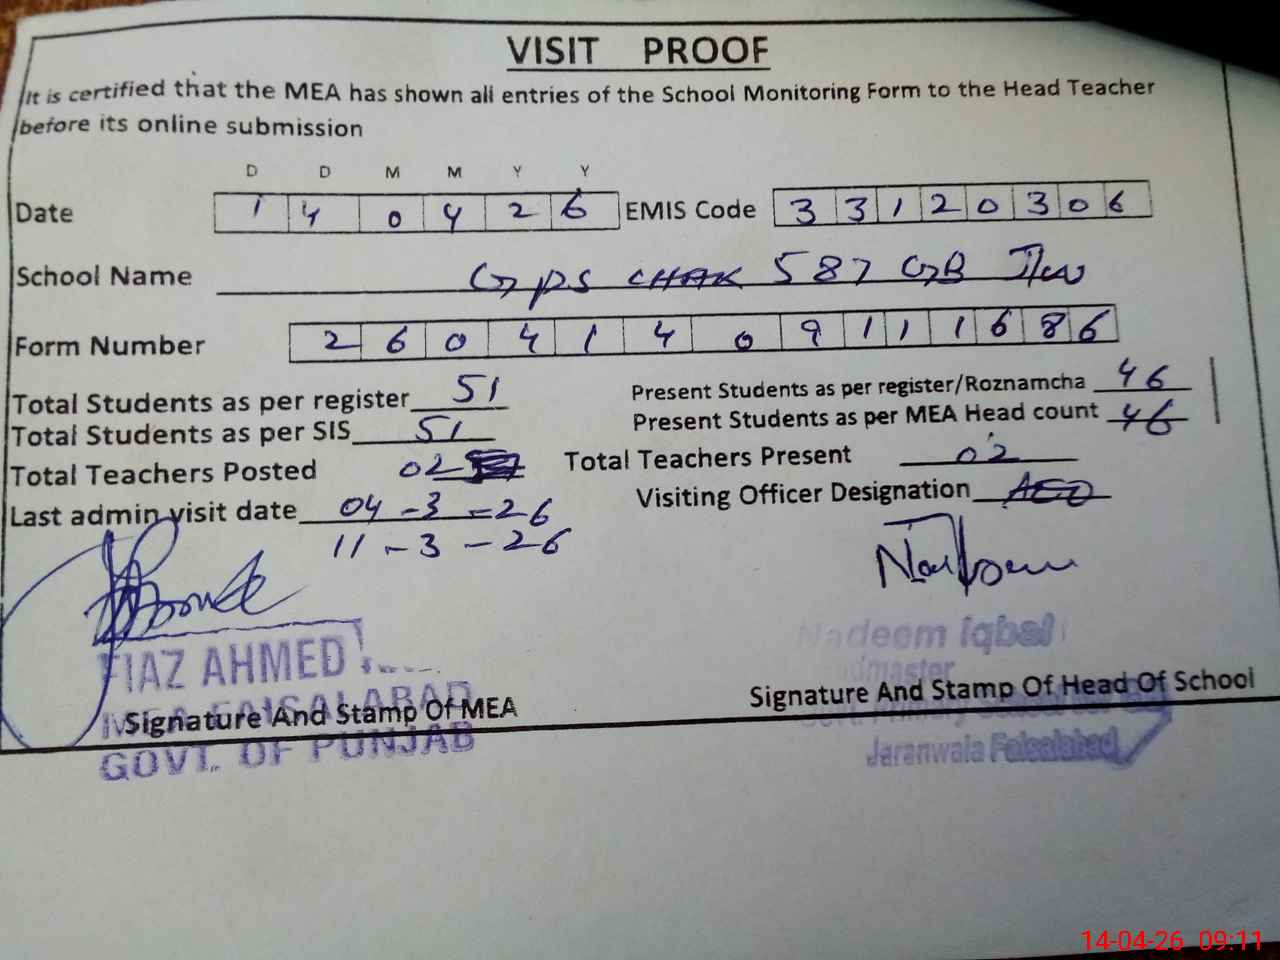 VISIT PROOF
It is certified that the MEA has shown all entries of the School Monitoring Form to the Head Teacher
before its online submission
D D M M Y Y
Date 1 4 0 4 2 6 EMIS Code 3 3 1 2 0 3 0 6
School Name GPS CHAK 587 GB
Form Number 2 6 0 4 1 4 0 9 1 1 1 6 8 6
Total Students as per register 51 Present Students as per register/Roznamcha 46
Total Students as per SIS 51 Present Students as per MEA Head count 46
Total Teachers Posted 02 Total Teachers Present 02
Last admin visit date 04-3-26 Visiting Officer Designation AEO
11-3-26
FIAZ AHMED
MEA FAISALABAD
GOVT. OF PUNJAB
Signature And Stamp Of MEA
Nadeem Iqbal
Headmaster
Signature And Stamp Of Head Of School
Jaranwala Faisalabad
14-04-26 09:11